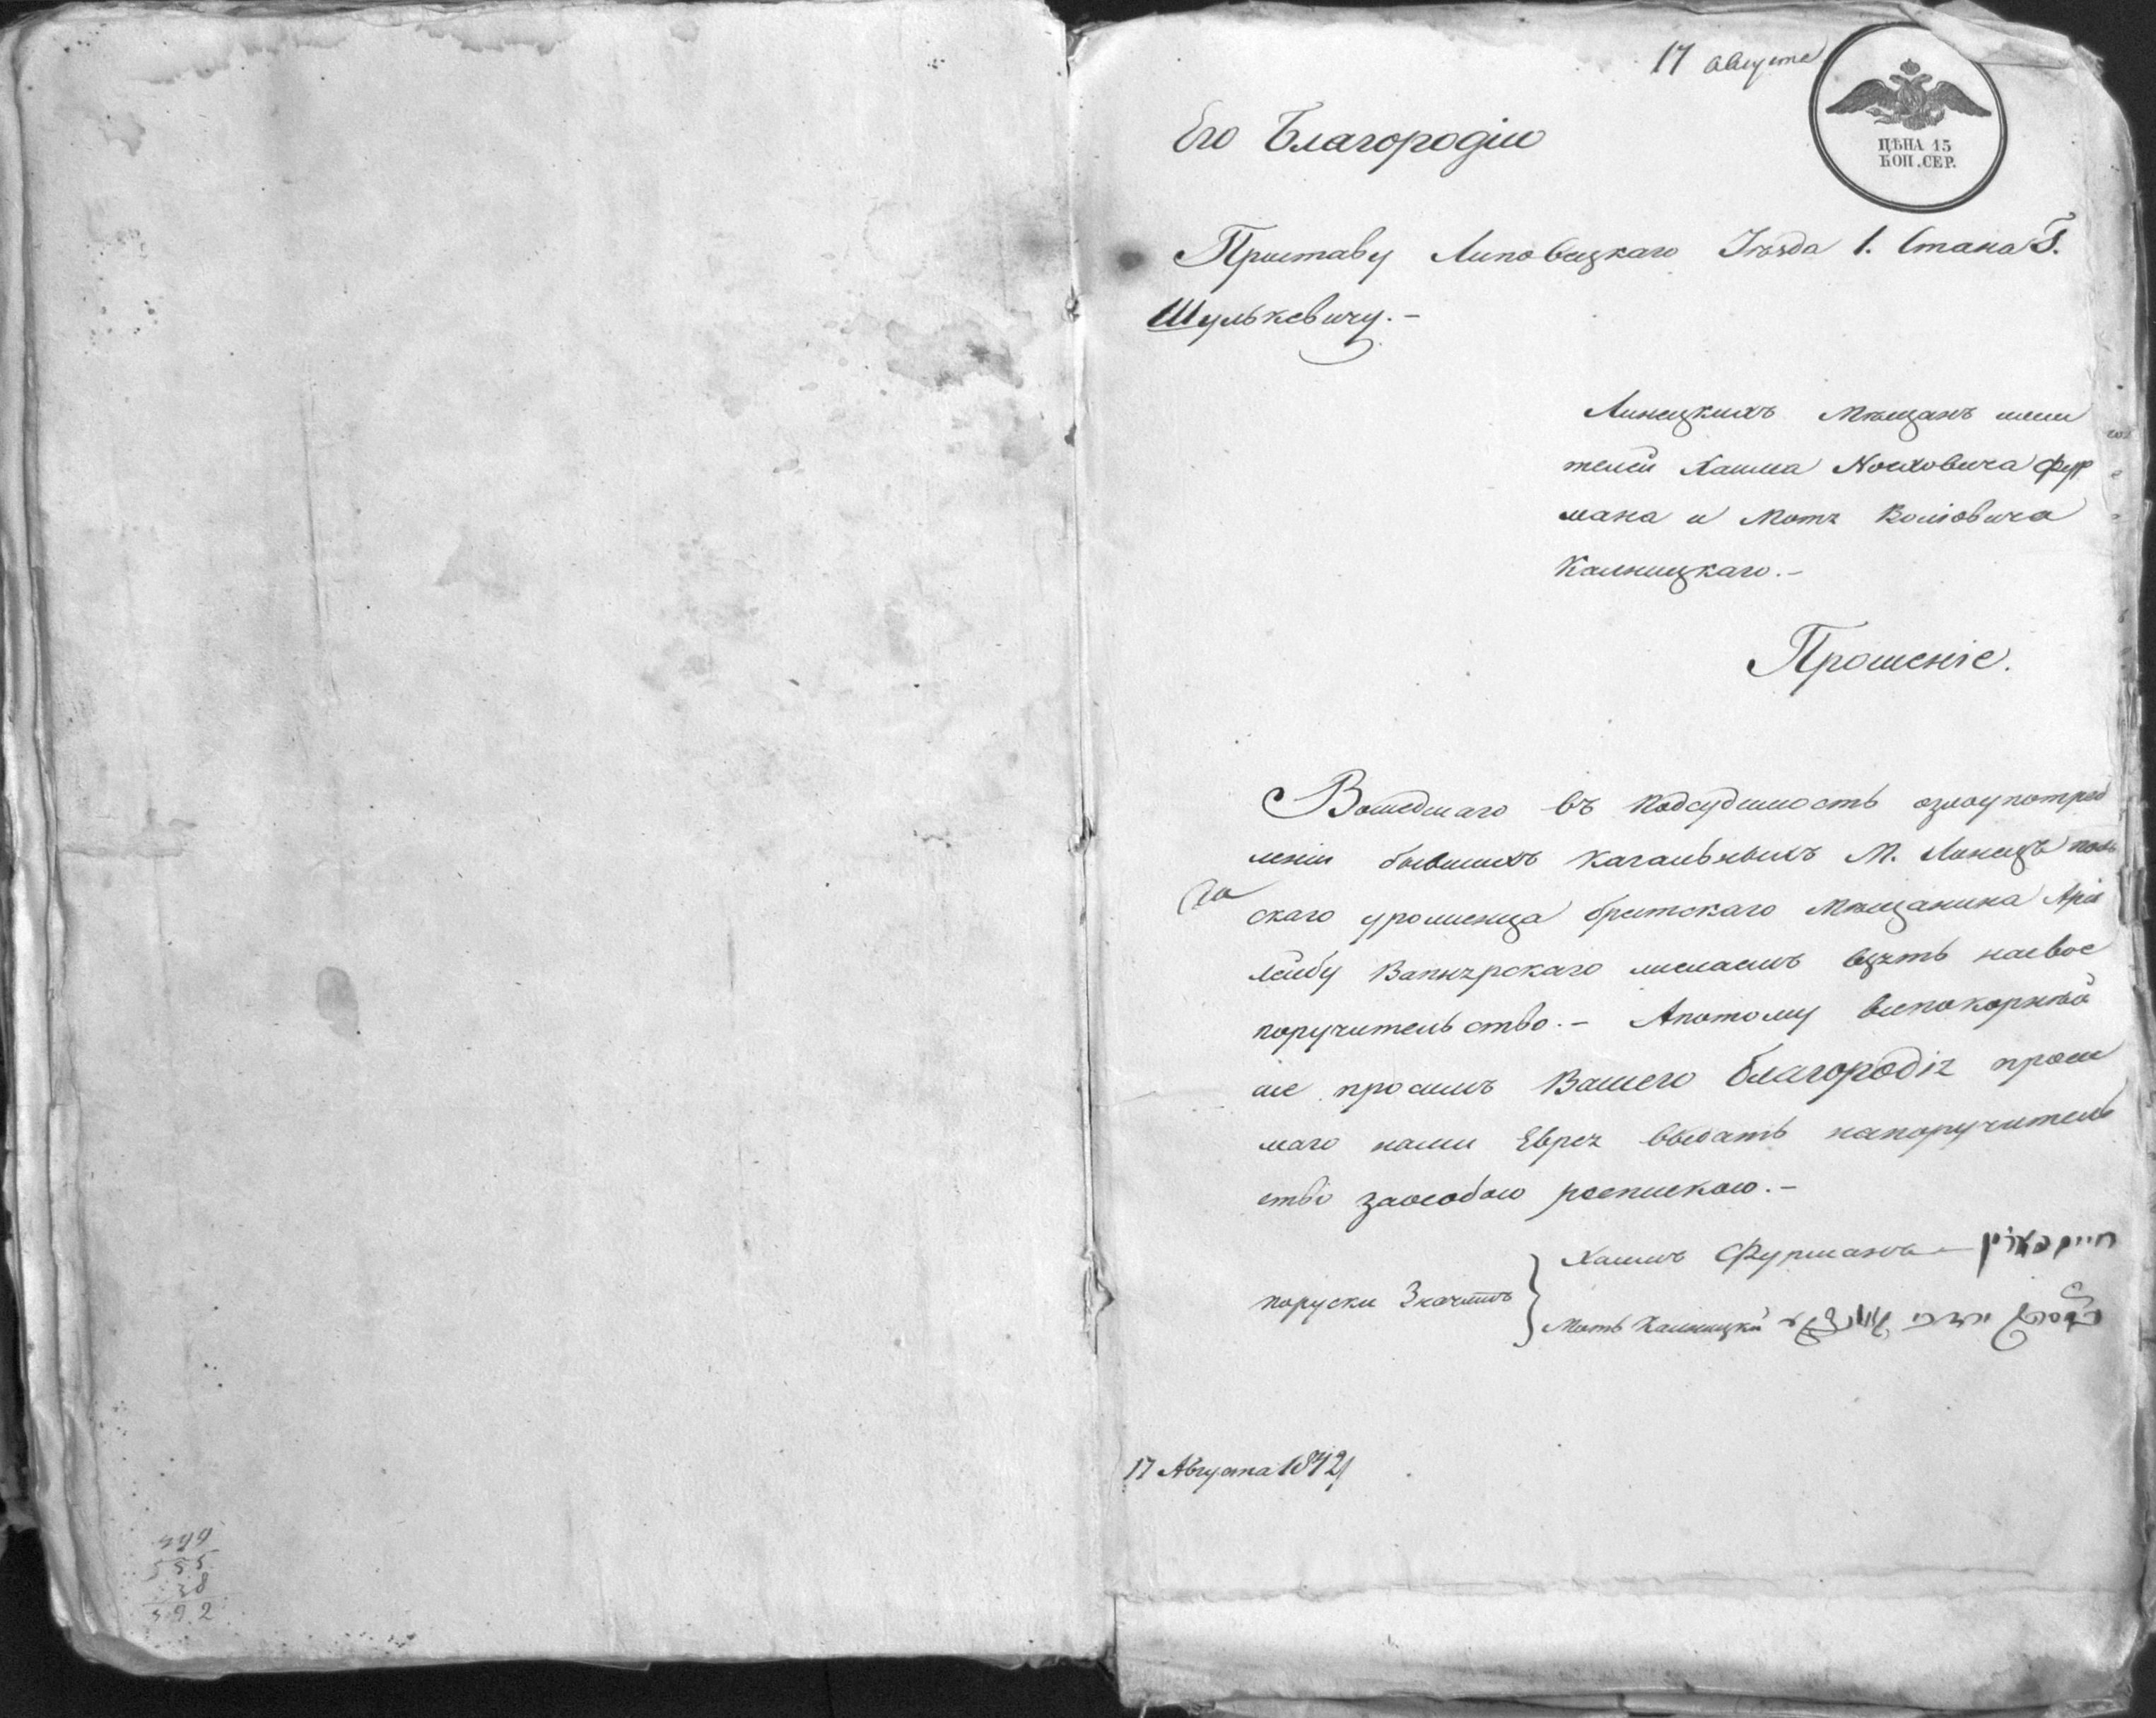 17 августа
ЦѢНА 15
КОП. СЕР.
Его Благородію
Приставу Липовецкаго Уѣзда 1. Стана Г.
Шулькевичу.-
Линецкихъ Мѣщанъ жи
телей Хаима Фур
мана и Мотя
Кальницкаго.-
Прошеніе.
Вошедшаго въ подсудимость озлоупотреб
леніи бывшихъ Кагальныхъ М. Линецъ
скаго уроженца Мѣщанина Арія
Лейбу Вапнярскаго желаемъ взять насвое
поручительство.- Апотому всепокорнѣй
ше просимъ Вашего Благородія проси
маго нами Еврея выдать напоручитель
ство заособою роспискою.-
поруски Значатъ } Хаимъ Фурманъ -
Моть Кальницкій
17 Августа 1842
392